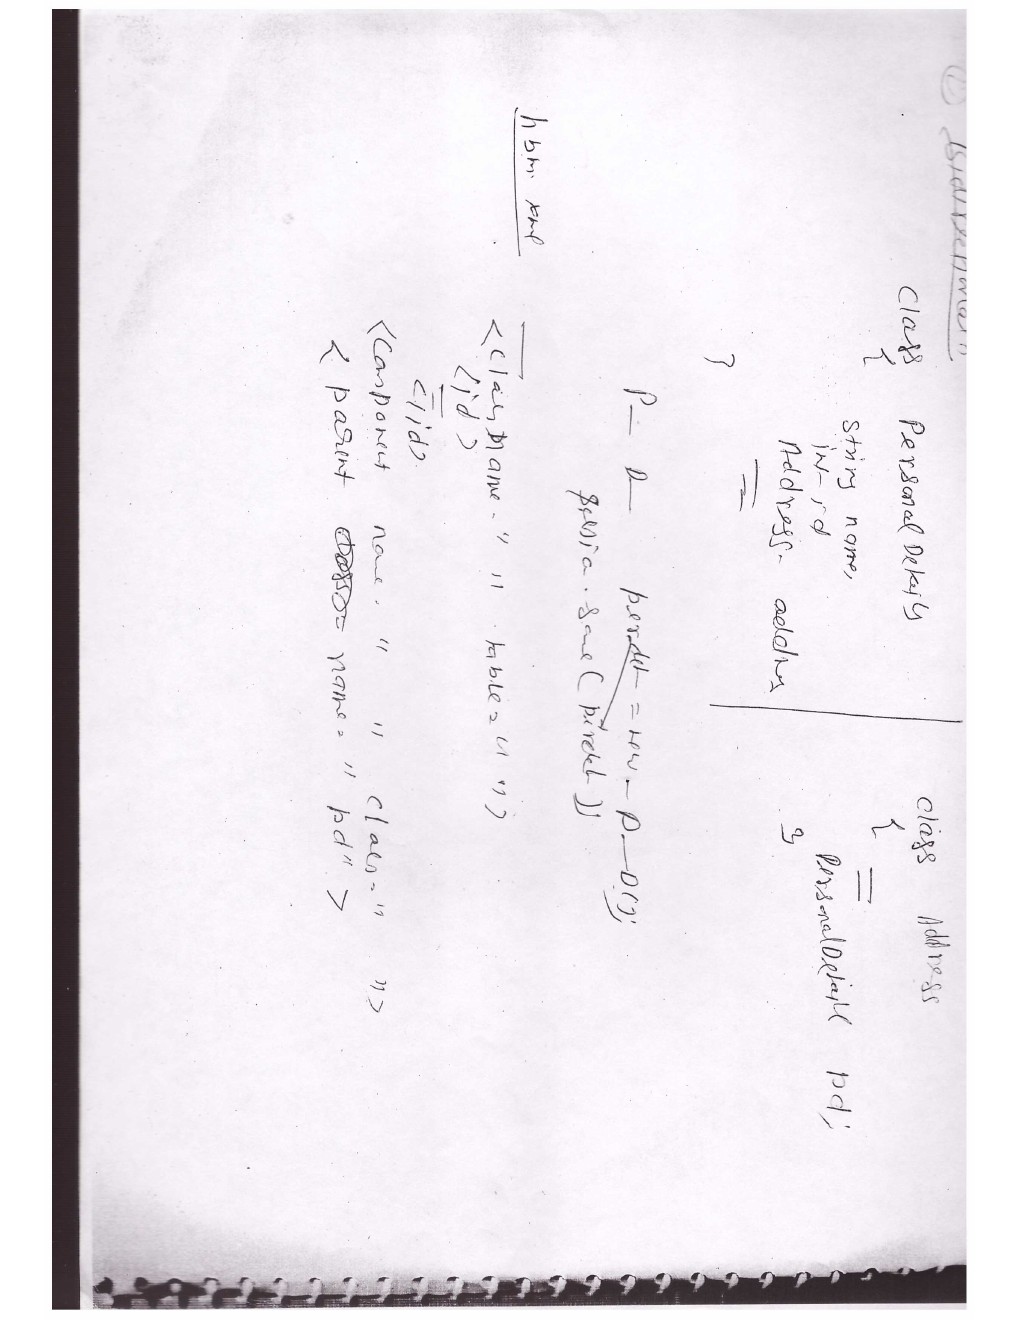 ① Bidirectional
Class Personal Details
{
String name,
int id
Address address
}
Class Address
{
Personal Details pd;
}
P— D— perdet = new — P—D();
session.save(perdet);
hbm xml
<class name=" " table=" ">
<id>
</id>
<component name=" " class=" ">
<parent name=" pd">